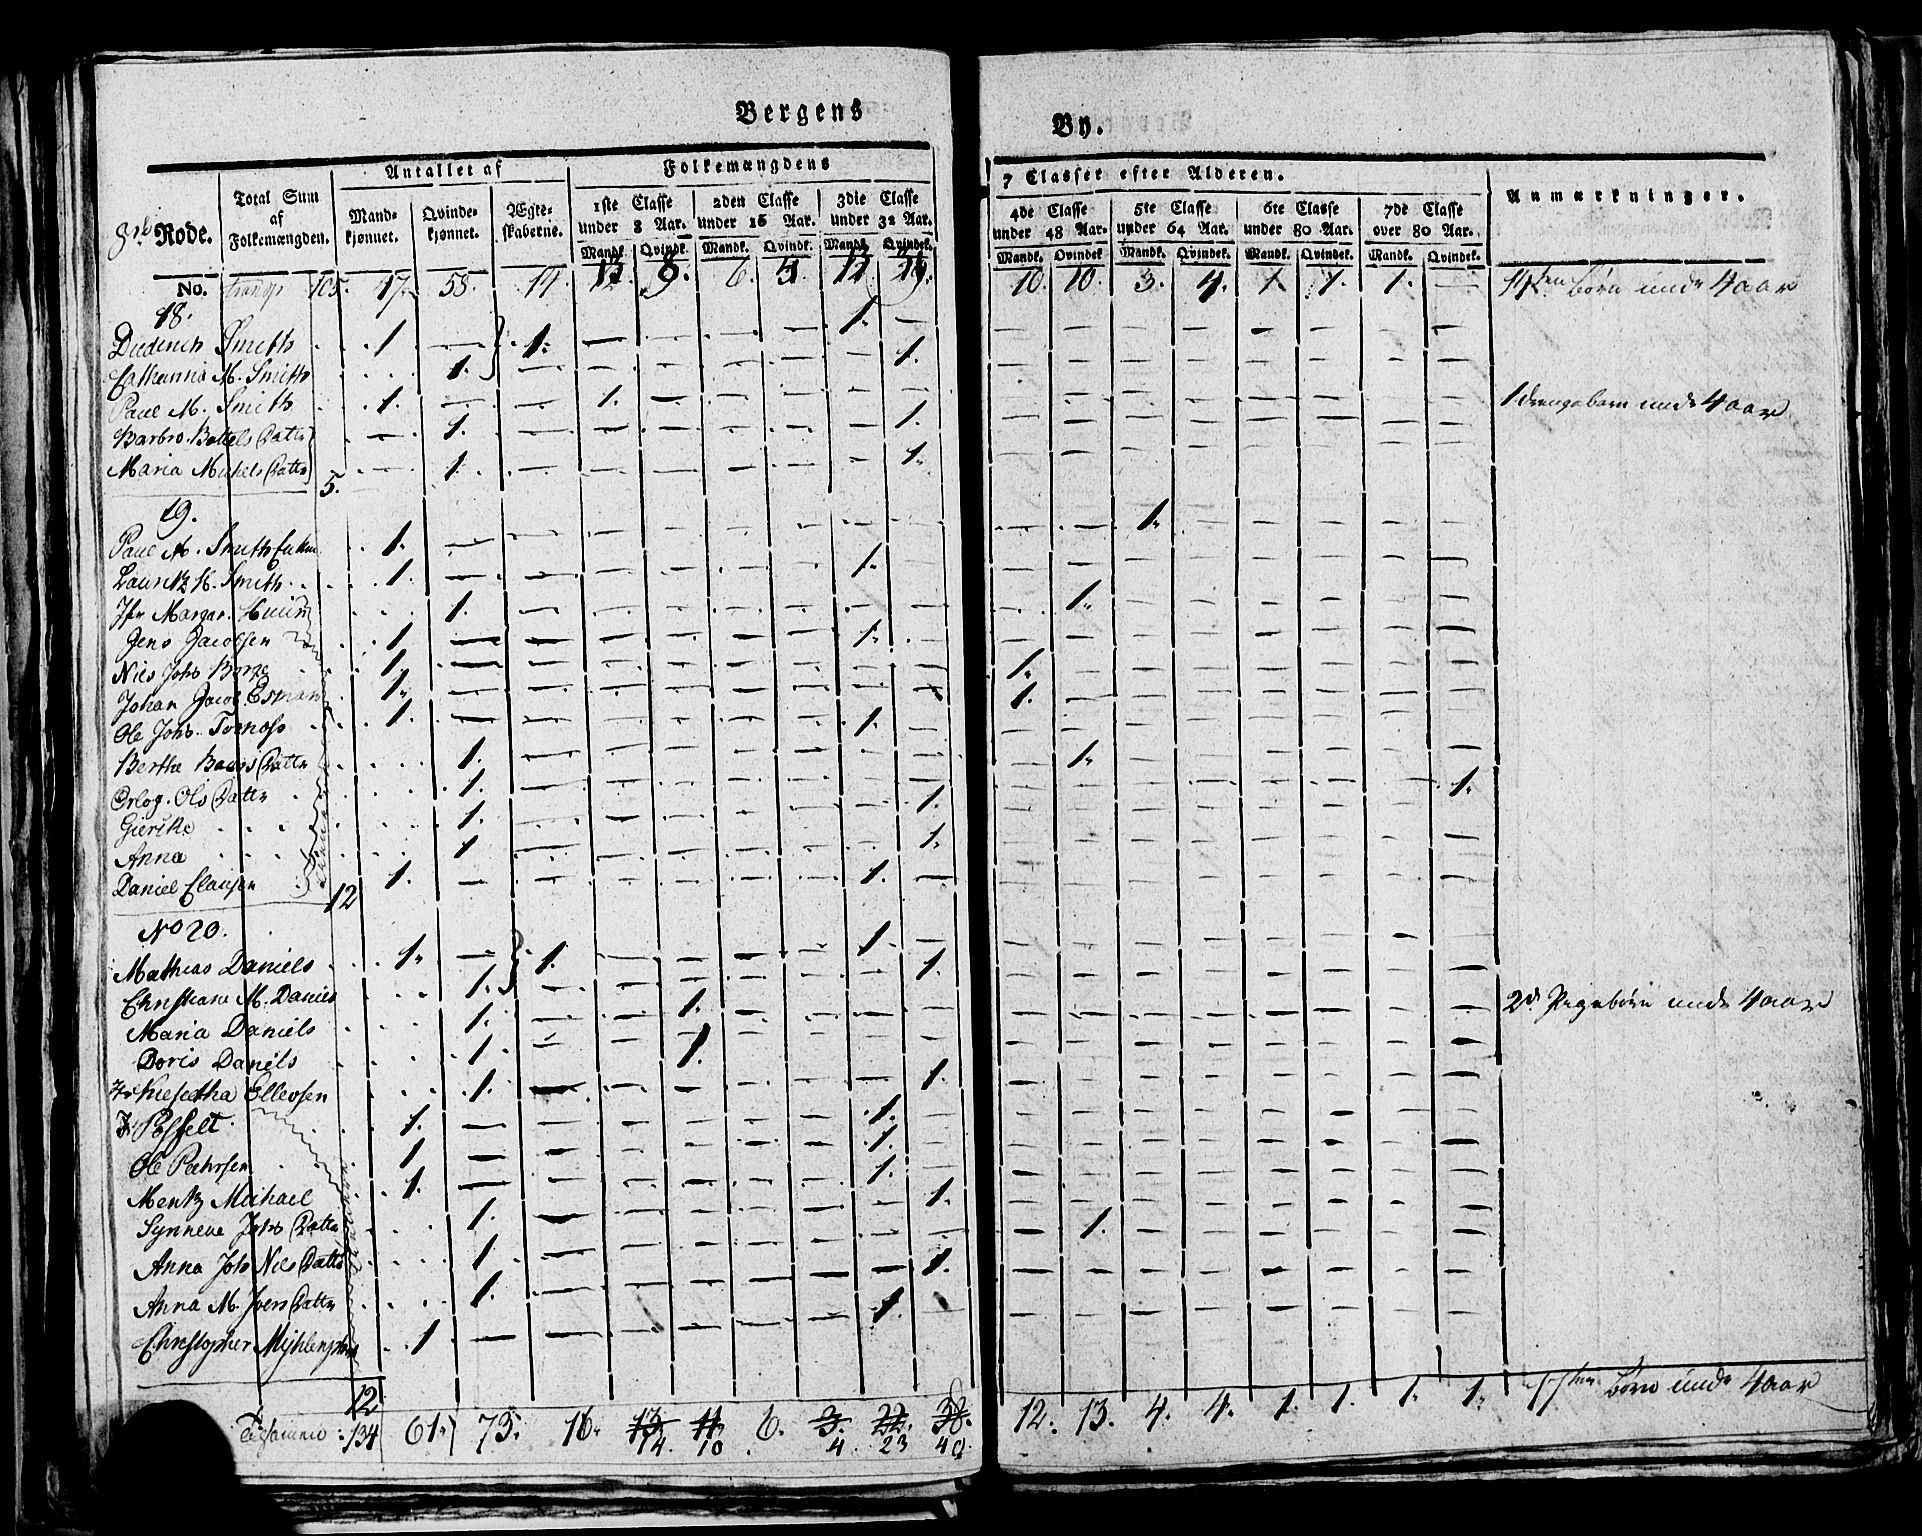 Bergens By.
Rode.
Total Sum af Folkemængden.
Antallet af
Mandkjønnet.
Qvindekjønnet.
Ægteskaberne.
Folkemængdens 7 Classer efter Alderen.
1ste Classe under 8 Aar.
2den Classe under 16 Aar.
3die Classe under 32 Aar.
4de Classe under 48 Aar.
5te Classe under 64 Aar.
6te Classe under 80 Aar.
7de Classe over 80 Aar.
Anmærkninger.
Mandk. Qvindk. Mandk. Qvindk. Mandk. Qvindek. Mandk. Qvindek. Mandk. Qvindek. Mandk. Qvindek. Mandk. Qvindek.
No. 105. 47. 58. 14 6. 10. 10. 3. 4. 1. 1. 1. — Børn unde 4 aar
18.
Diederich Smith 1 — 1. 1. —
Cathanna M. Smith 1. — 1.
Paul M. Smith 1. — 1. 1 drengebarn unde 4 aar
Barbro Bottels Datter — 1. 1.
Maria Michels Datter — 1. 1.
5.
19.
Paul M. Smith 1. — 1.
Lauritz H. Smith 1. — 1.
Jfr Margar. 1. — 1.
Jens Jacobsen 1. — 1.
Nils Johs 1. — 1.
Johan Jacob Esman 1. — 1.
Ole Johs. 1. — 1.
Berthe Baars Datter 1. — 1.
Orlog. Ols Datter 1. — 1.
Gierske 1. — 1.
Anna 1 — 1.
Daniel Clausen 1. — 1.
12
No 20.
Mathias Daniels 1. — 1. 1.
Christiane M. Daniels 1. 1.
Maria Daniels 1. — 1. 2de Pigebørn unde 4 aar
Doris Daniels 1. — 1.
Ellevsen 1. — 1.
Posselt 1. — 1.
Ole Pehrsen 1 — 1.
Mentz Michael 1. — 1.
Synneve Johs Datter 1. — 1.
Anna Joh Nils Datter 1. — 1.
Anna M. Joers Datter 1. — 1.
Christopher 1. — 1.
12
Tilsammen 134 61. 73. 16. 13. 14. 11 10 6. 3. 4. 22. 23 38. 40. 12. 13. 4. 4. 1. 1. 1. 1. Børn unde 4 aar